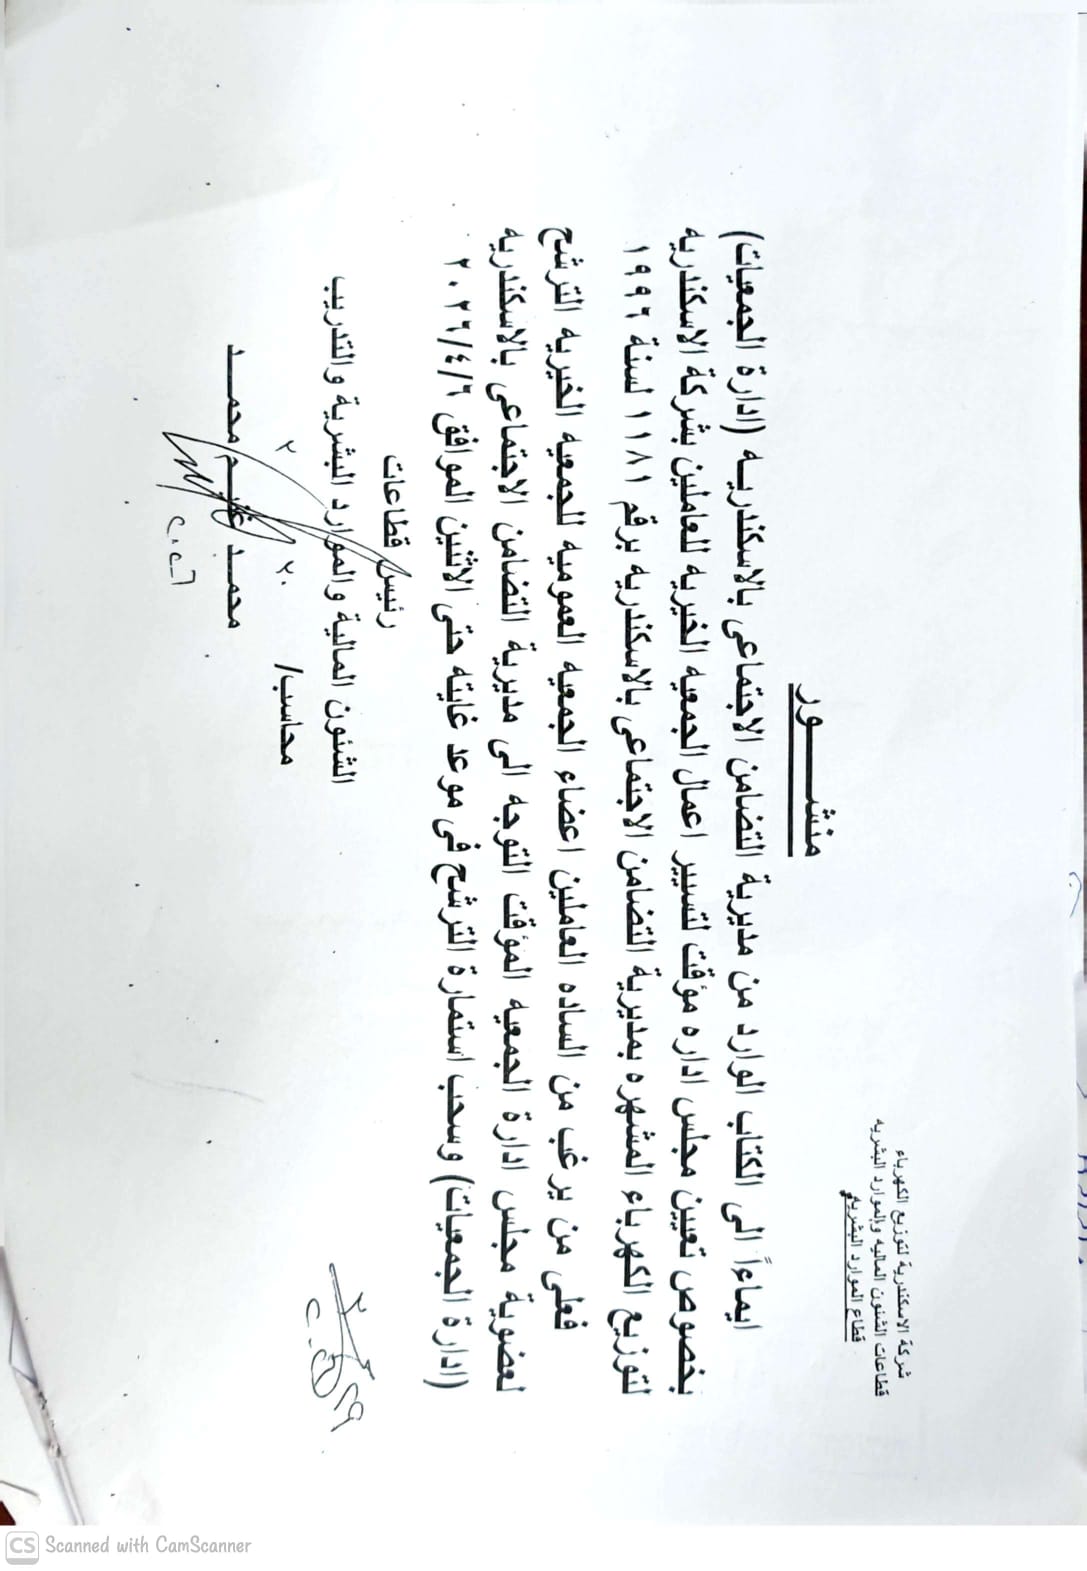 شركة الاسكندرية لتوزيع الكهرباء
قطاعات الشئون الماليه والموارد البشريه
قطاع الموارد البشريه
منشـــــور
ايماءاً الى الكتاب الوارد من مديرية التضامن الاجتماعى بالاسكندريـه (ادارة الجمعيات)
بخصوص تعيين مجلس اداره مؤقت لتسيير اعمال الجمعيه الخيريه للعاملين بشركة الاسكندريه
لتوزيع الكهرباء المشهره بمديرية التضامن الاجتماعى بالاسكندريه برقم ١١٨١ لسنة ١٩٩٦
فعلى من يرغب من الساده العاملين اعضاء الجمعيه العموميه للجمعيه الخيريه الترشح
لعضوية مجلس ادارة الجمعيه المؤقت التوجه الى مديرية التضامن الاجتماعى بالاسكندريه
(ادارة الجمعيات) وسحب استمارة الترشح فى موعد غايته حتى الاثنين الموافق ٢٠٢٦/٤/٦
رئيس قطاعات
الشئون المالية والموارد البشرية والتدريب
محاسب/
محمـــد غنيـــم محمـــد
٢٠٢٦
Scanned with CamScanner